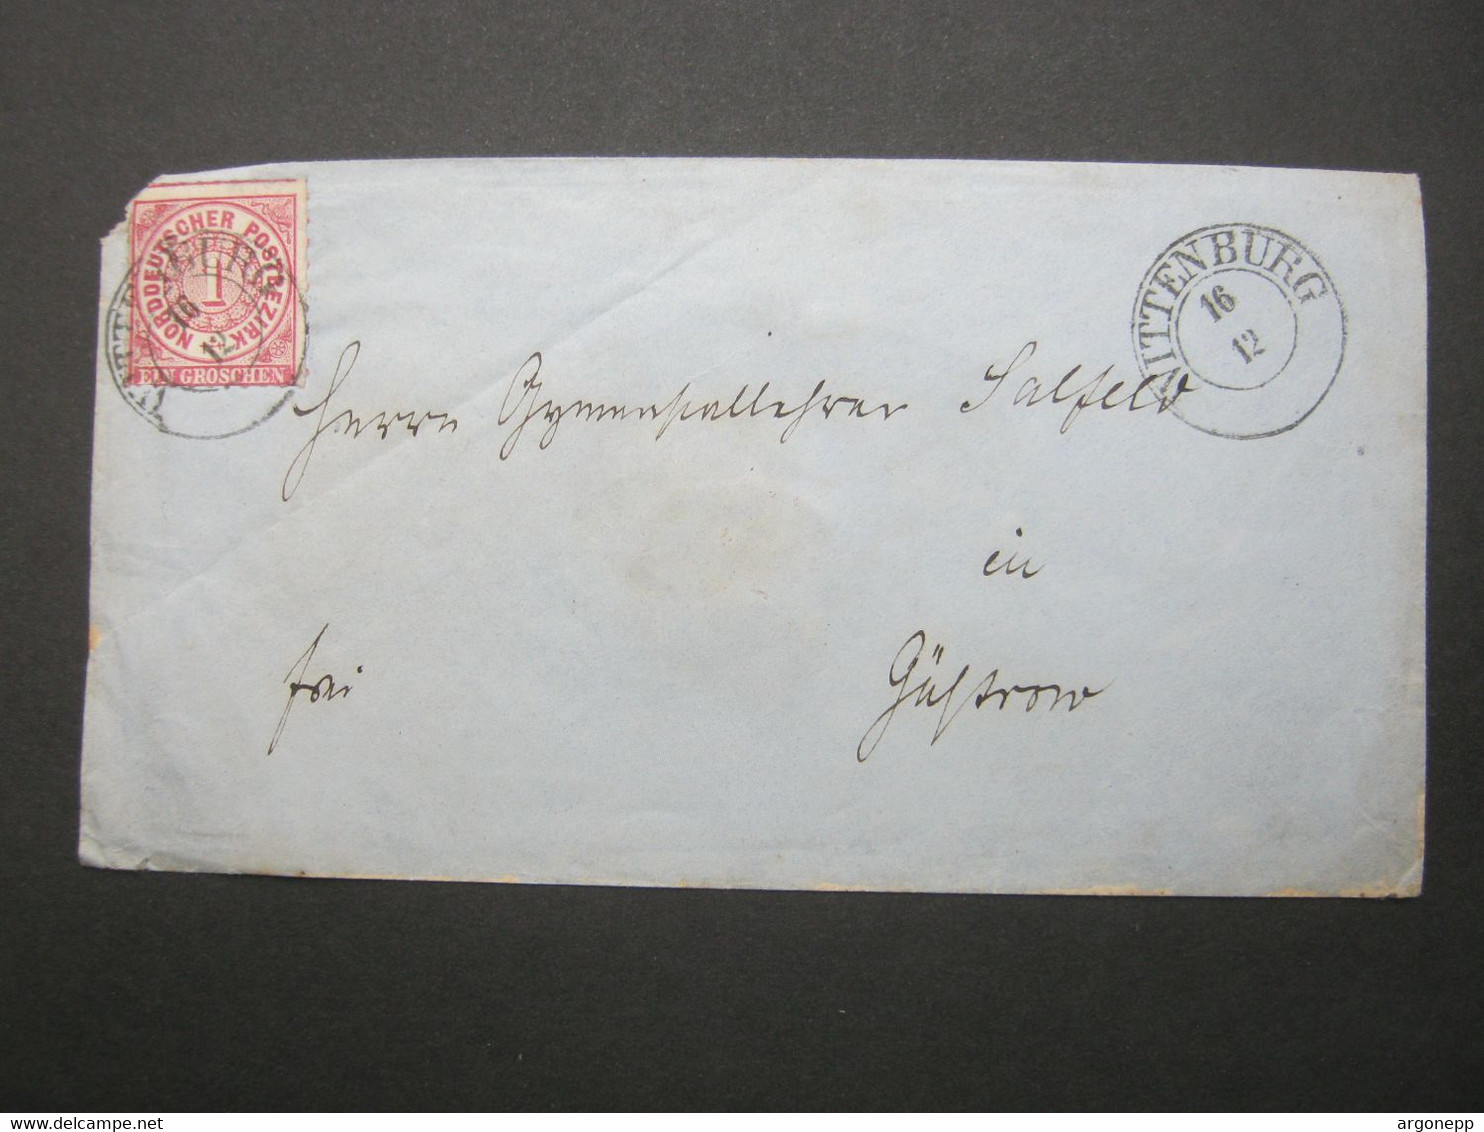 NORDDEUTSCHER POSTBEZIRK
1
EIN GROSCHEN
WITTENBURG
16
12
WITTENBURG
16
12
Herrn Gymnasiallehrer Salfeld
in
frei Güstrow
Delcampe.net
argonepp